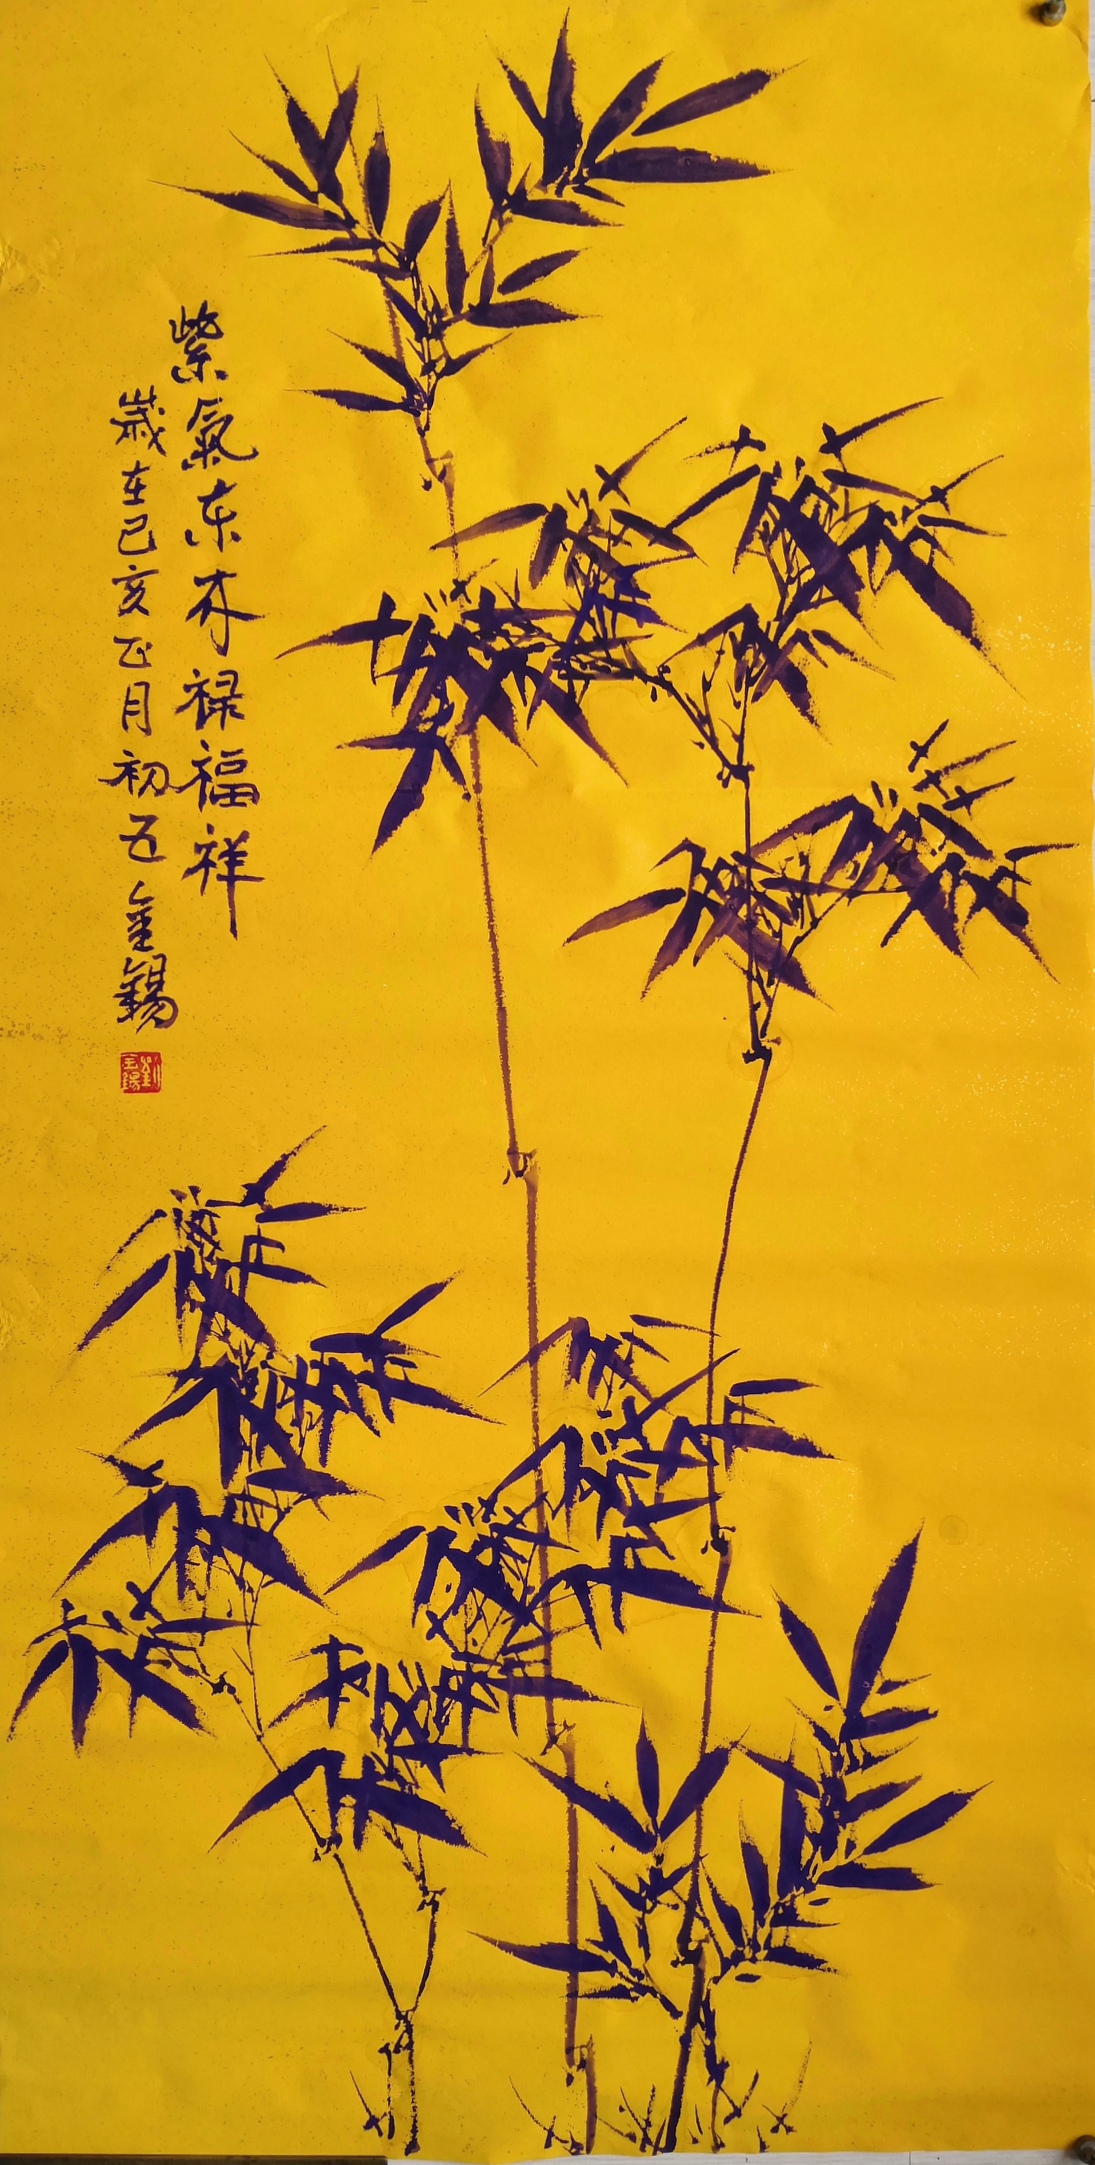 紫氣东来禄福祥
歲在己亥正月初五金錫
劉金錫